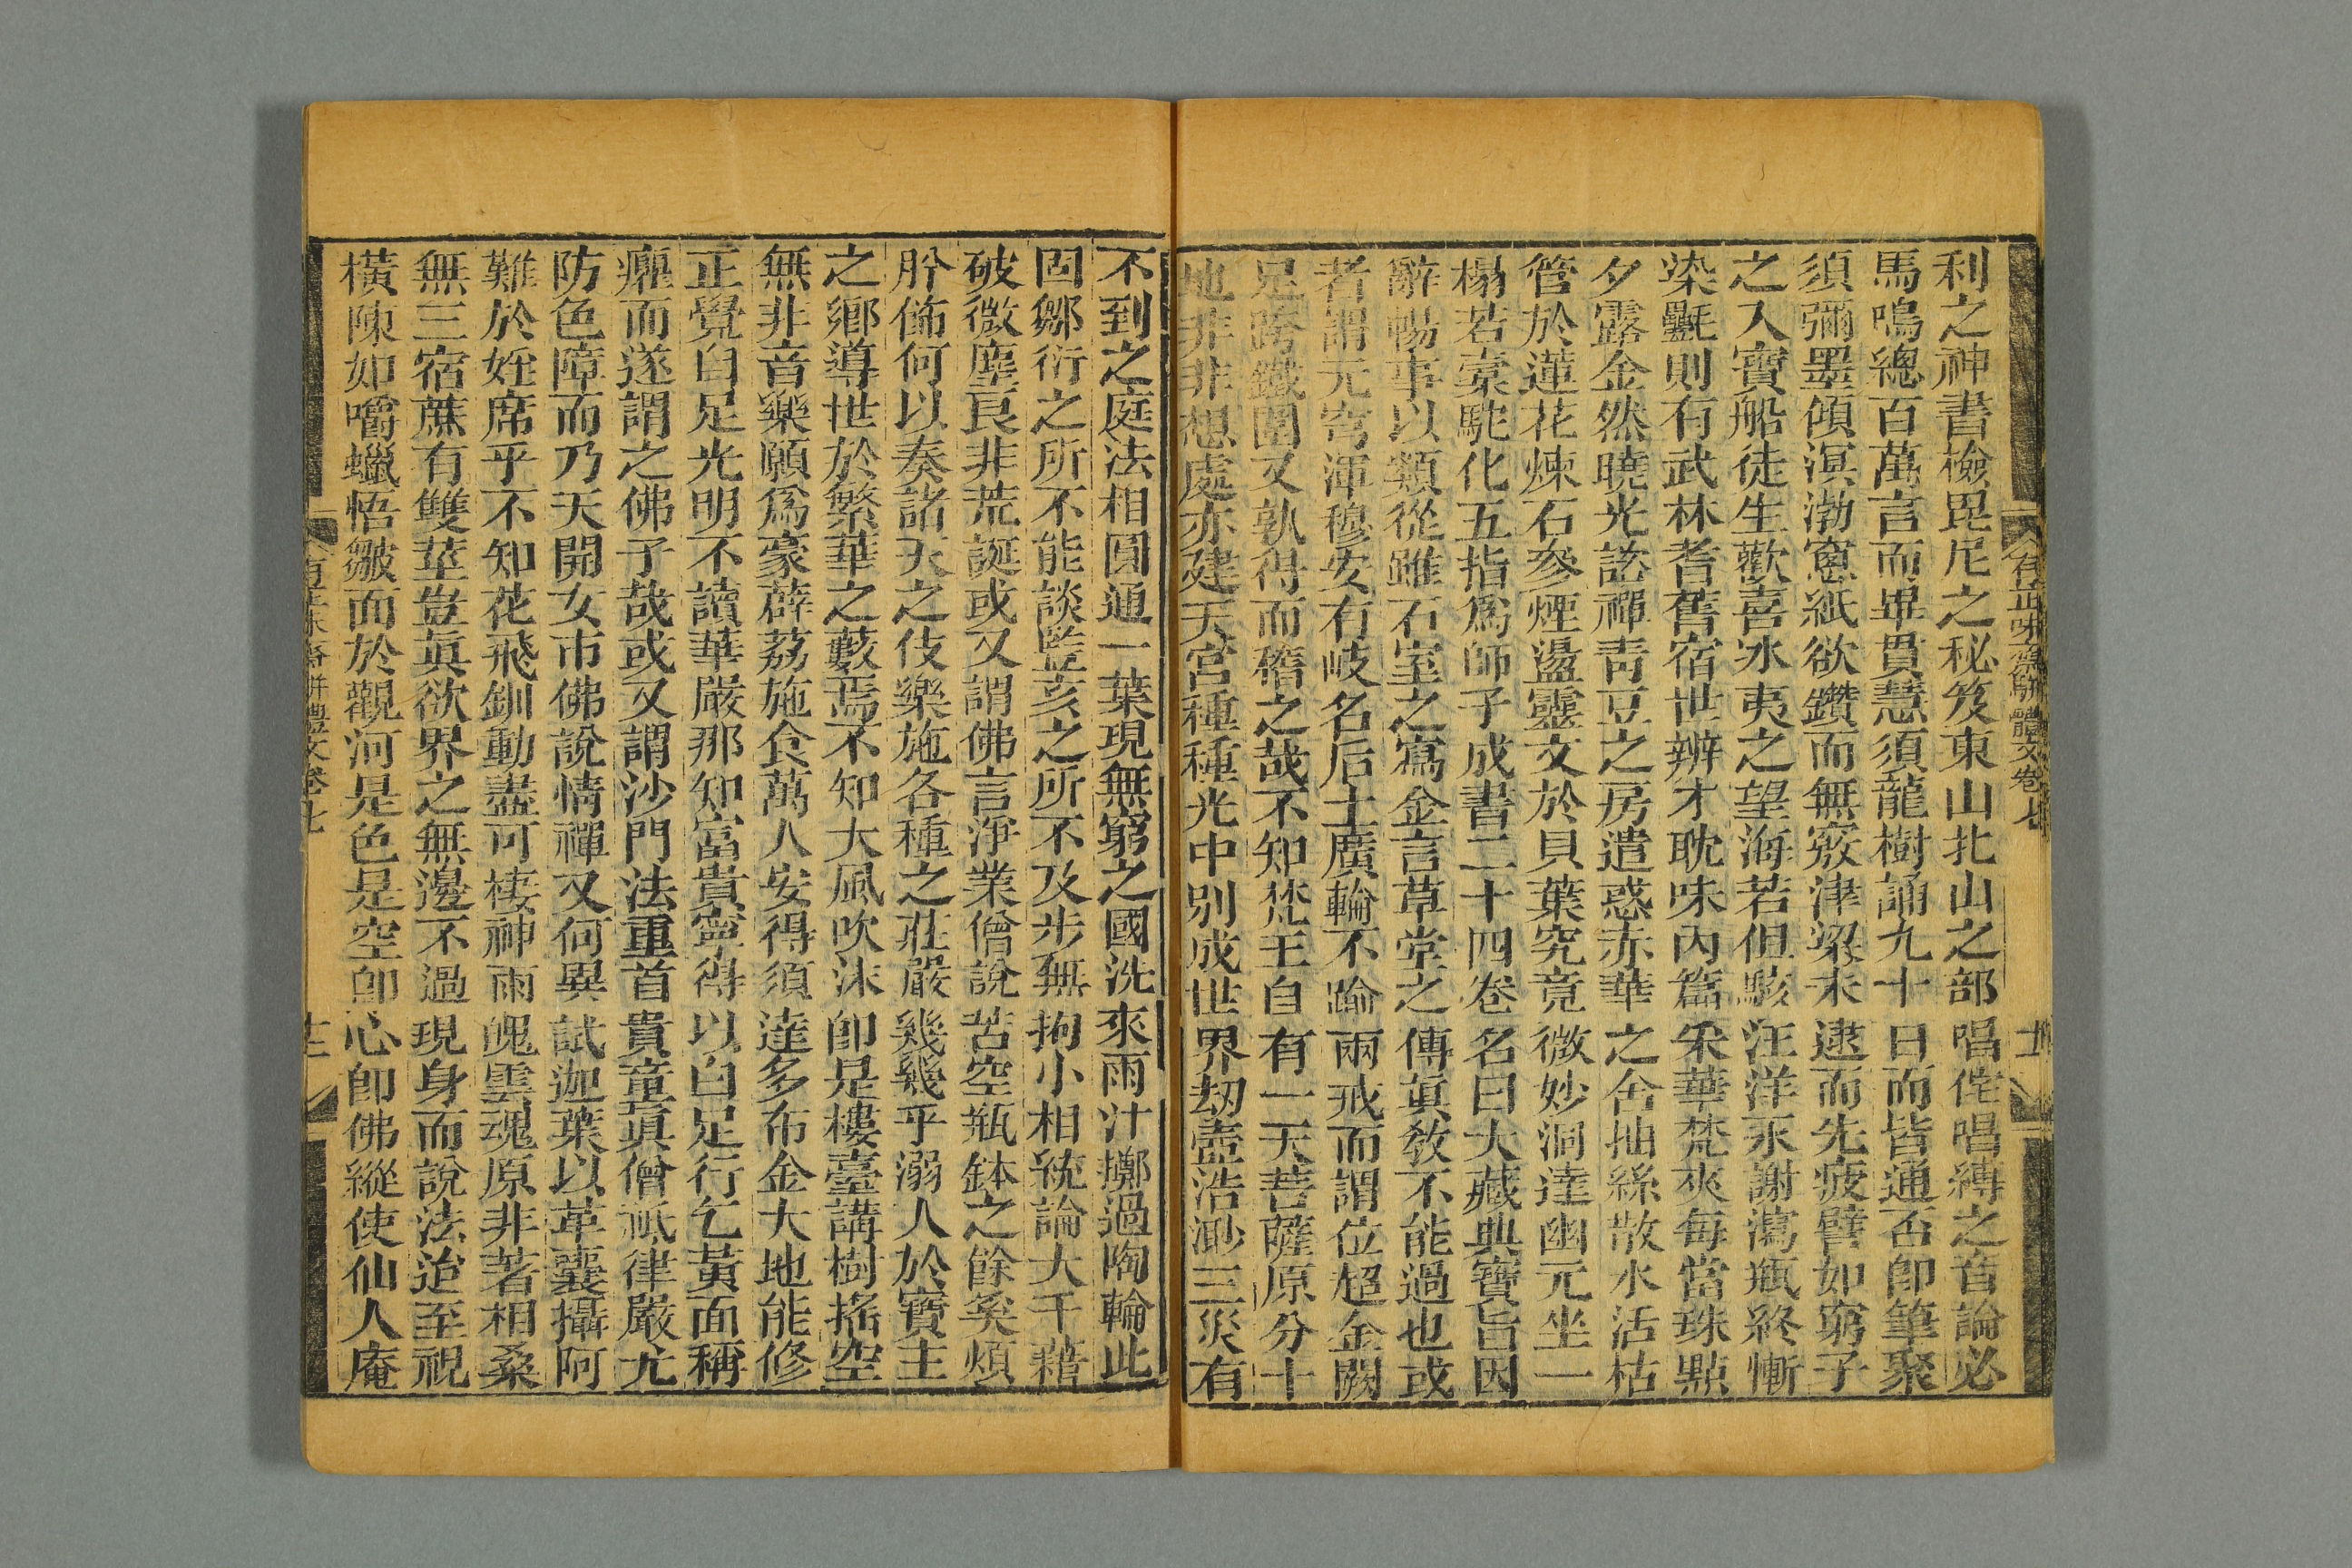 有正味齋駢體文卷七
利之神書檢毘尼之秘笈東山北山之部唱侘唱縛之音論必
馬鳴總百萬言而畢貫慧須龍樹誦九十日而皆通否卽筆聚
須彌墨傾溟渤窻紙欲鑽而無竅津梁未逮而先疲譬如窮子
之入寶船徒生歡喜氷夷之望海若但駭汪洋永謝瀉瓶終慚
染氎則有武林耆舊宿世辨才耽味內篇采華梵夾每當珠點
夕露金然曉光訟禪靑豆之房遣惑赤華之舍抽絲散水活枯
管於蓮花煉石參煙盪靈文於貝葉究竟微妙洞達幽元坐一
榻若橐駝化五指爲師子成書二十四卷名曰大藏典寶旨因
辭暢事以類從雖石室之寫金言草堂之傳眞敎不能過也或
者謂元穹渾穆安有岐名后土廣輪不踰兩戒而謂位超金闕
足跨鐵圍又孰得而稽之哉不知梵王自有一天菩薩原分十
地非非想處亦建天宮種種光中別成世界劫盡浩渺三災有
不到之庭法相圓通一葉現無窮之國洗來雨汁擲過陶輪此
固鄒衍之所不能談豎亥之所不及步無拘小相統論大千藉
破微塵良非荒誕或又謂佛言淨業僧說苦空瓶鉢之餘奚煩
肸飾何以奏諸天之伎樂施各種之莊嚴幾幾乎溺人於寶主
之鄉導世於繁華之藪焉不知大風吹沫卽是樓臺講樹搖空
無非音樂願爲豪薜荔施食萬人安得須達多布金大地能修
正覺自足光明不讀華嚴那知富貴寧得以白足行乞黃面稱
癯而遂謂之佛子哉或又謂沙門法重首貴童眞僧祗律嚴尤
防色障而乃天開女市佛說情禪又何異試迦葉以革囊攝阿
難於婬席乎不知花飛釧動盡可棲神雨魄雲魂原非著相桑
無三宿蔗有雙莖豈眞欲界之無邊不過現身而說法迨至視
橫陳如嚼蠟悟皺而於觀河是色是空卽心卽佛縱使仙人庵
有正味齋駢體文卷七